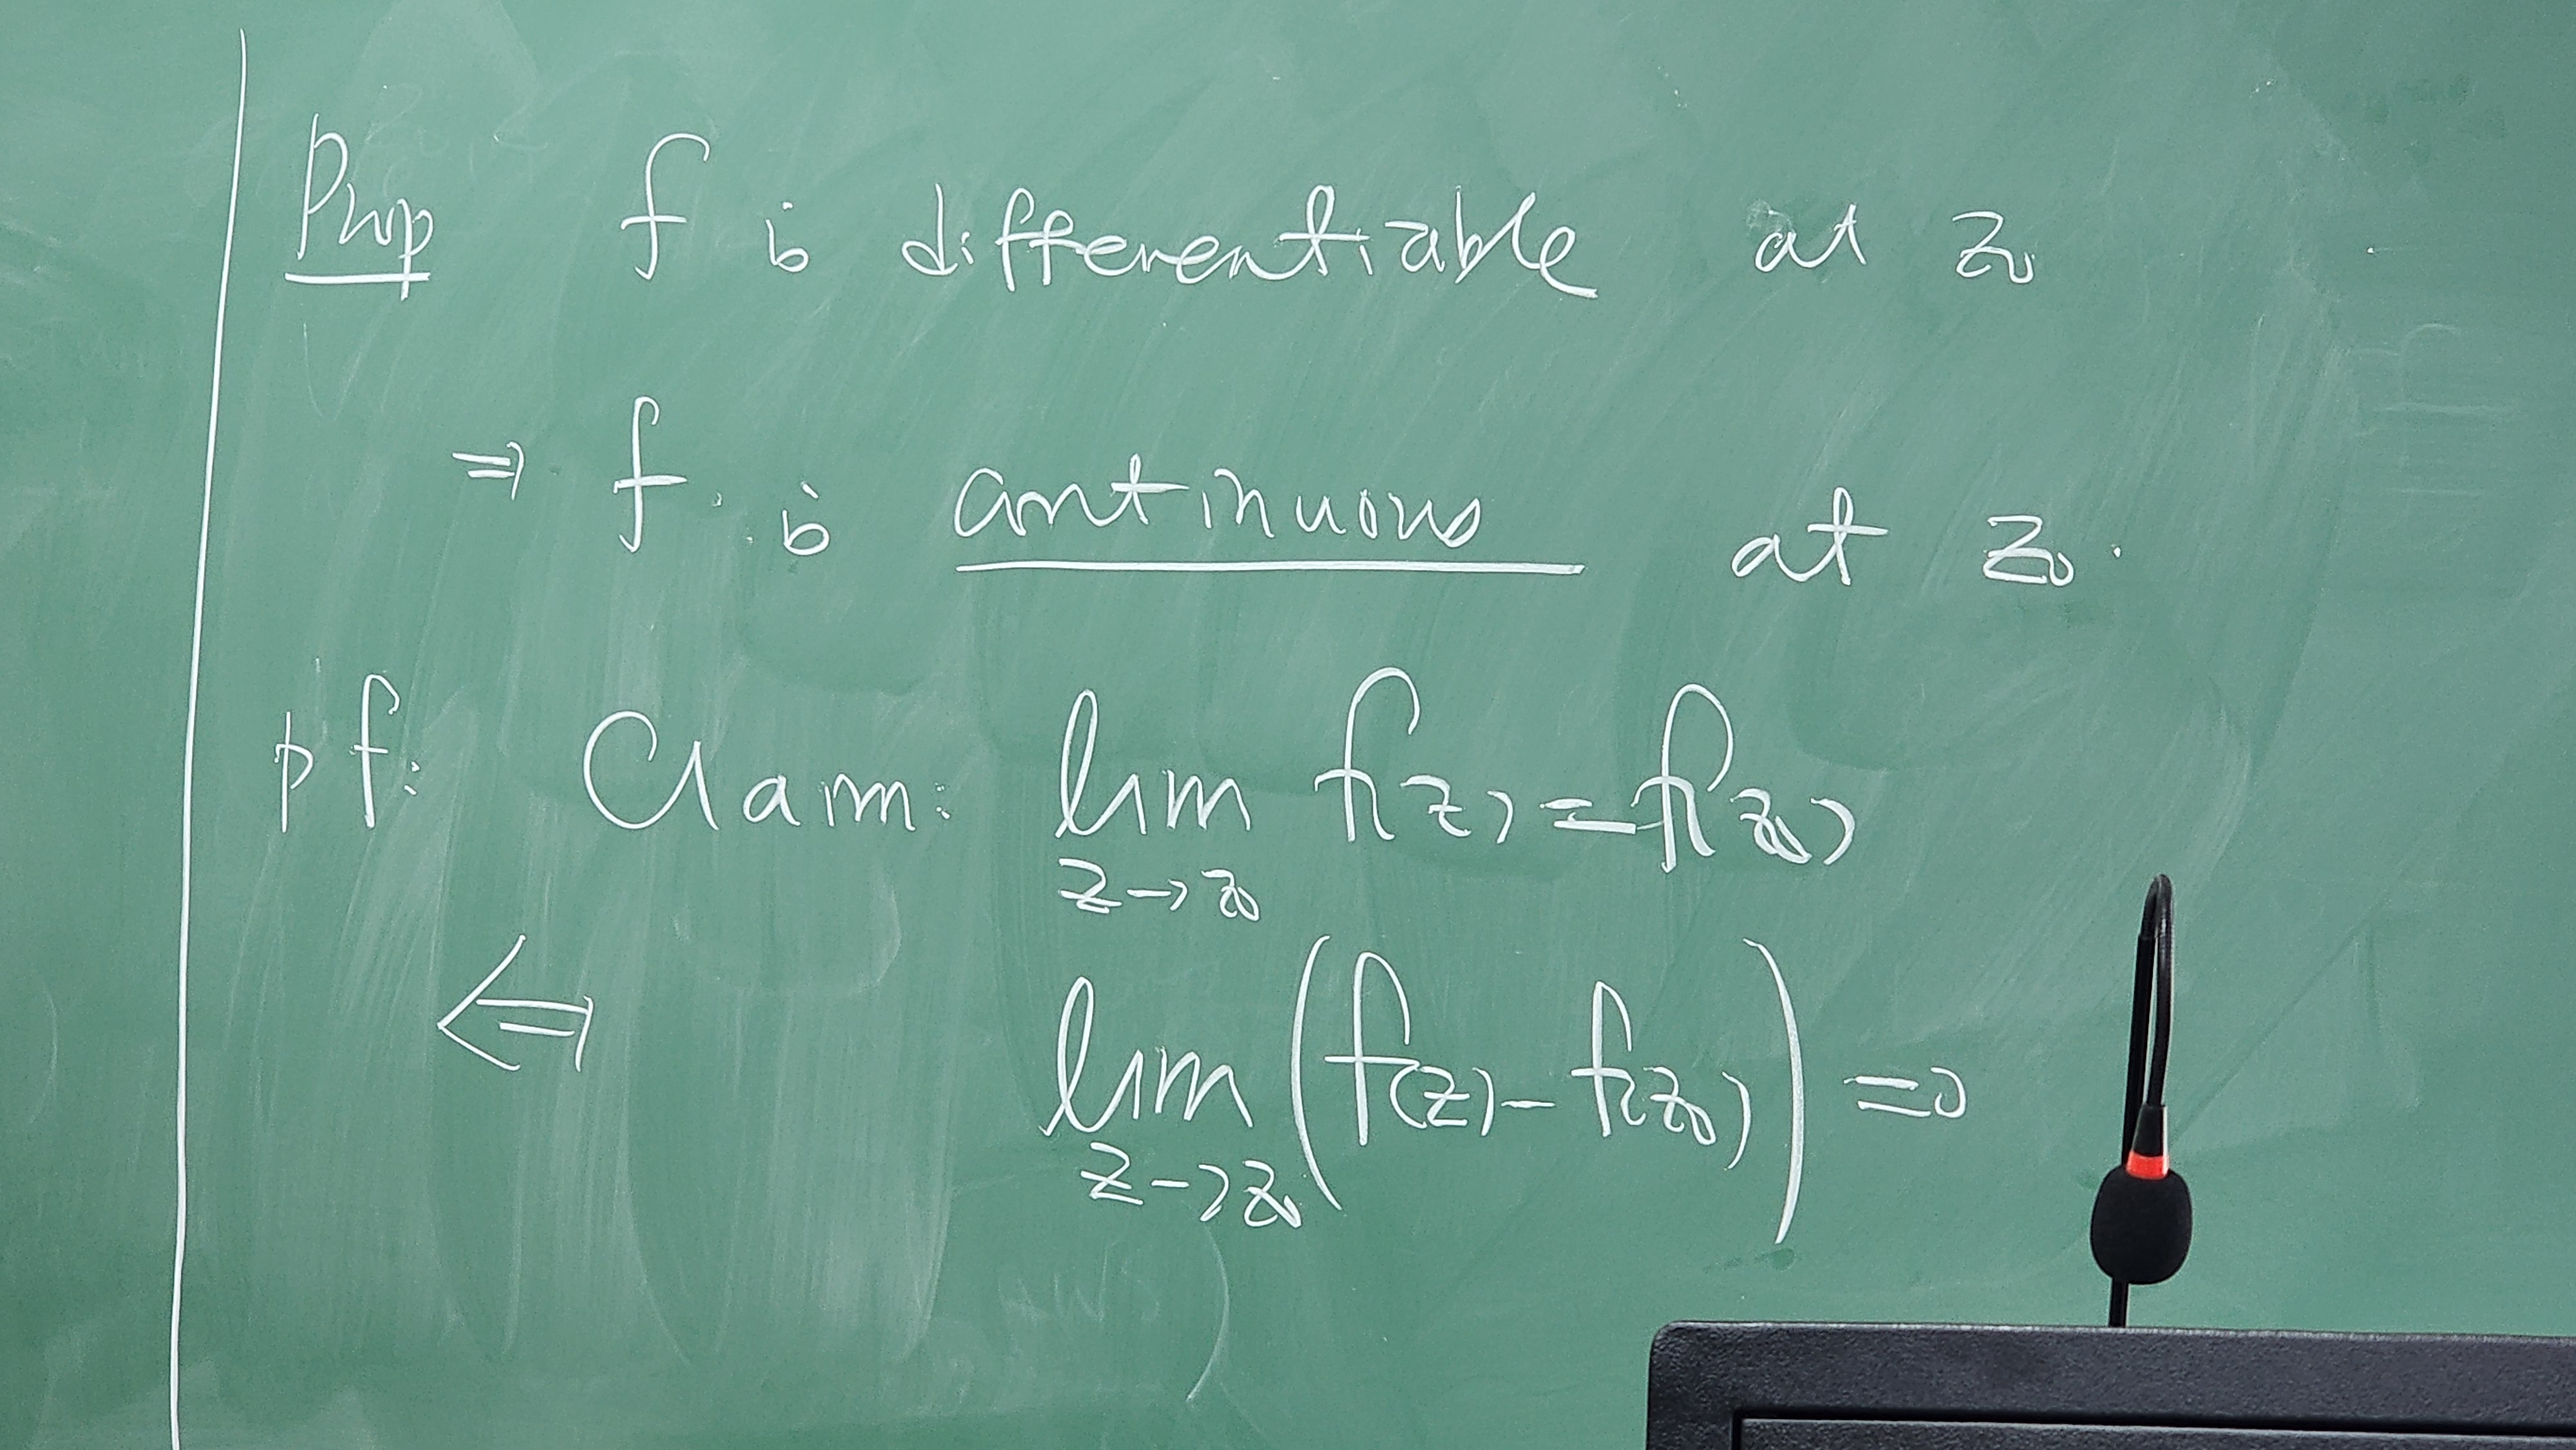 Prop f is differentiable at z₀
⇒ f is continuous at z₀.
pf: Claim: lim f(z) = f(z₀)
z→z₀
⇐ lim (f(z) - f(z₀)) = 0
z→z₀